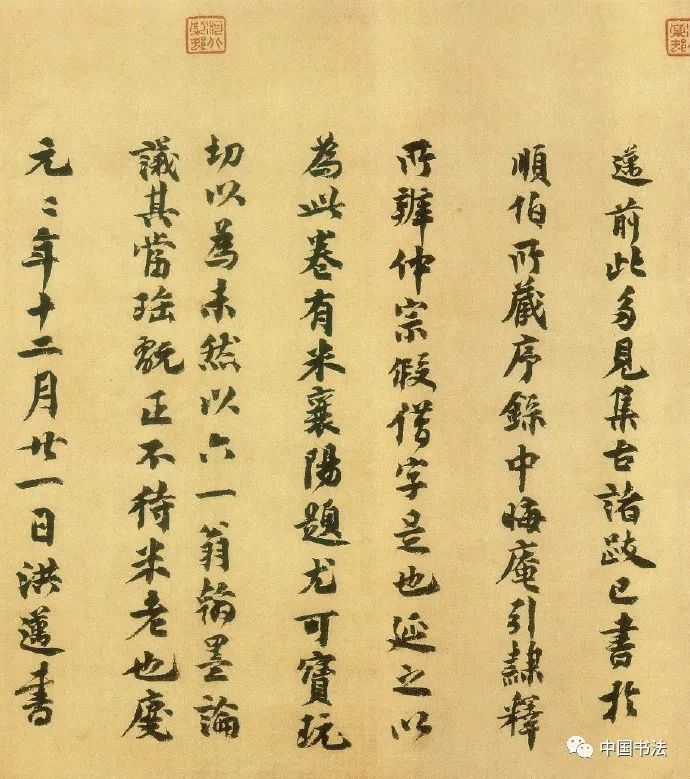 邁前此多見集古諸跋已書於
順伯所藏序錄中晦庵引隸釋
所辨仲宗假借字是也延之以
為此卷有米襄陽題尤可寶玩
切以為未然以六一翁翰墨論
議其當珤翫正不待米老也慶
元二年十二月廿一日洪邁書
河北棠村
中国书法